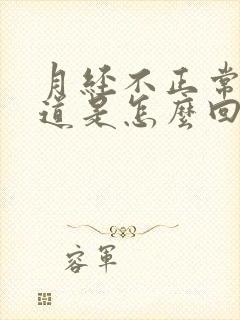 月经不正常
道是怎麼回
容軍